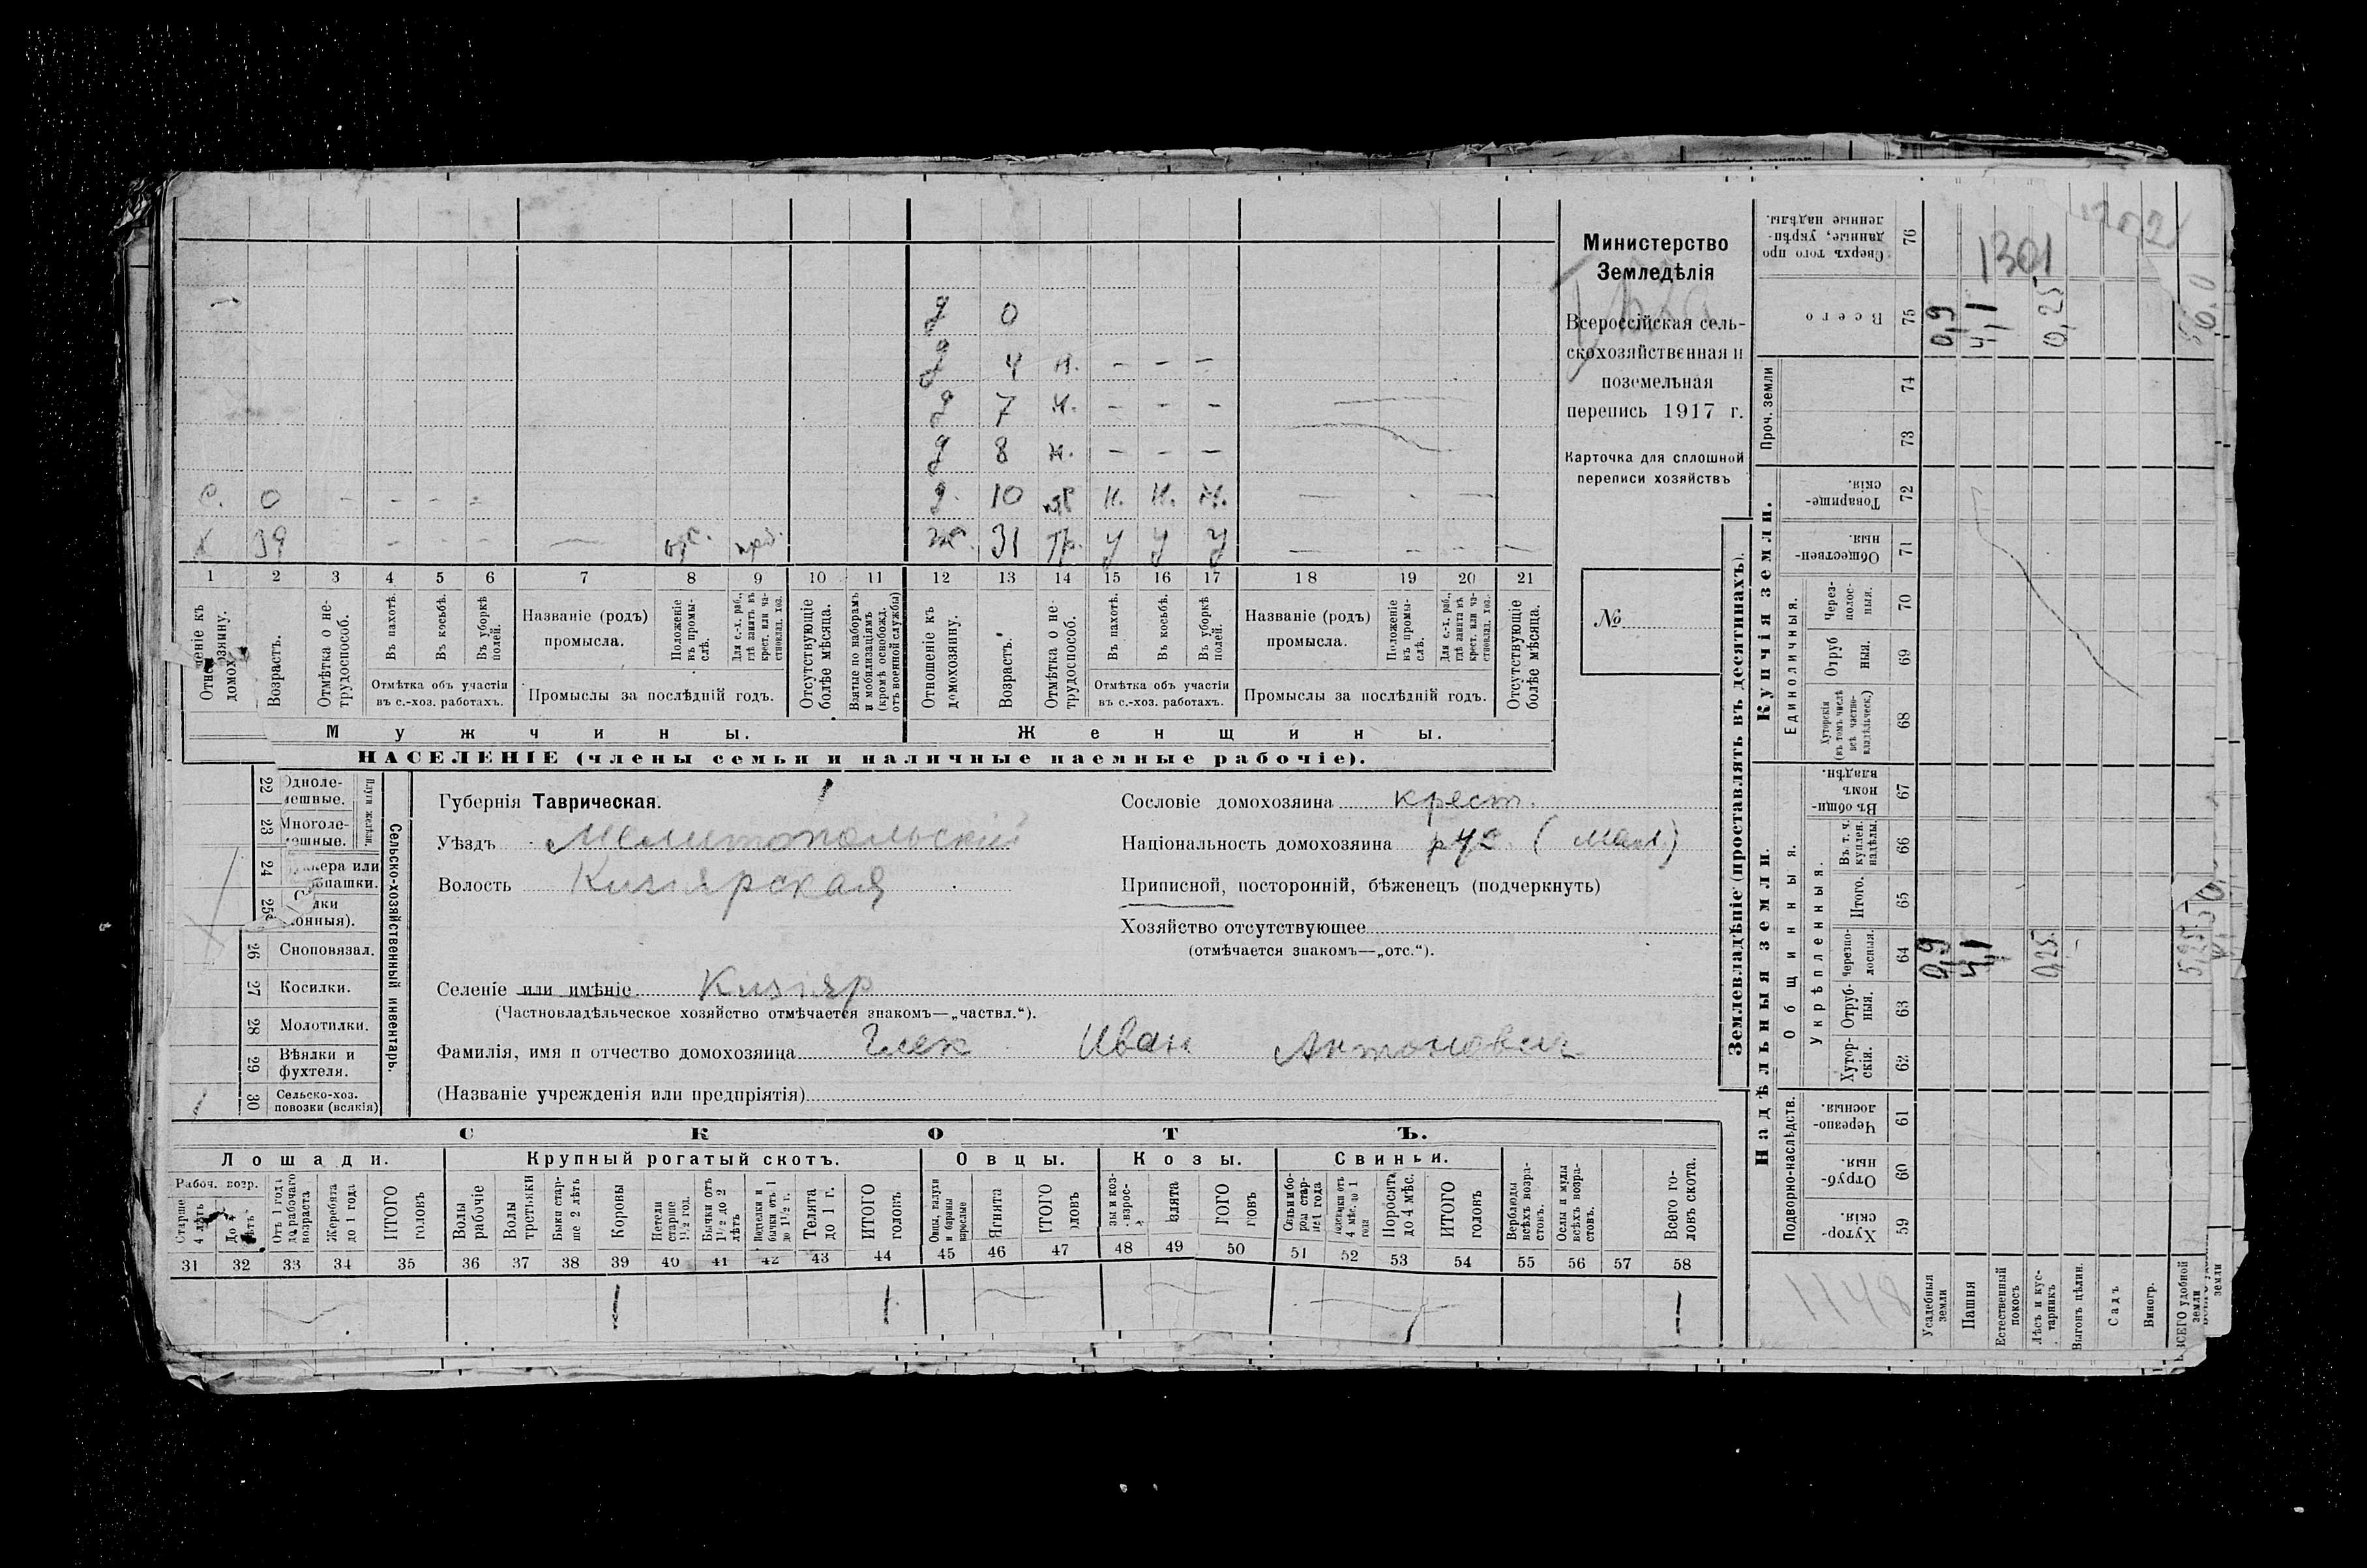 д 0
д 4 н. - - -
д 7 н. - - -
д 8 н. - - -
с. 0 - - - - д. 10 н. н. н. - - -
х 39 - - - - ж. 31 тр. у у у - - - -
1 2 3 4 5 6 7 8 9 10 11 12 13 14 15 16 17 18 19 20 21
Отношеніе къ домохозяину.
Возрастъ.
Отмѣтка о нетрудоспособ.
Въ пахотѣ.
Въ косьбѣ.
Въ уборкѣ полей.
Отмѣтка объ участіи
въ с.-хоз. работахъ.
Названіе (родъ)
промысла.
Положеніе въ промыслѣ.
Для с.-х. раб., гдѣ занятъ въ крест. или частновлад. хоз.
Промыслы за послѣдній годъ.
Отсутствующіе болѣе мѣсяца.
Взятые по наборамъ и мобилизаціямъ (кромѣ освобожд. отъ военной службы)
Отношеніе къ домохозяину.
Возрастъ.
Отмѣтка о нетрудоспособ.
Въ пахотѣ.
Въ косьбѣ.
Въ уборкѣ полей.
Отмѣтка объ участіи
въ с.-хоз. работахъ.
Названіе (родъ)
промысла.
Положеніе въ промыслѣ.
Для с.-х. раб., гдѣ занята въ крест. или частновлад. хоз.
Промыслы за послѣдній годъ.
Отсутствующіе болѣе мѣсяца.
Мужчины.
Женщины.
НАСЕЛЕНІЕ (члены семьи и наличные наемные рабочіе).
Министерство
Земледѣлія
Всероссійская сель-
скохозяйственная и
поземельная
перепись 1917 г.
Карточка для сплошной
переписи хозяйствъ
№
Губернія Таврическая.
Уѣздъ Мелитопольскій
Волость Кизіярская
Селеніе или имѣніе Кизіяр
(Частновладѣльческое хозяйство отмѣчается знакомъ—„частвл.“).
Фамилія, имя и отчество домохозяина Глек Иван Антонович
(Названіе учрежденія или предпріятія)
Сословіе домохозяина крест.
Національность домохозяина рус. (мал.)
Приписной, посторонній, бѣженецъ (подчеркнуть)
Хозяйство отсутствующее
(отмѣчается знакомъ—„отс.“).
Сельско-хозяйственный инвентарь.
Плуги желѣзн.
22 Одноле-
мешные.
23 Многоле-
мешные.
24
25
26 Сноповязал.
27 Косилки.
28 Молотилки.
29 Вѣялки и
фухтеля.
30 Сельско-хоз.
повозки (всякія)
СКОТЪ.
Лошади.
Крупный рогатый скотъ.
Овцы.
Козы.
Свиньи.
Рабоч. возр.
Старше 4 лѣтъ
До 4 лѣтъ
Отъ 1 года до рабочаго возраста
Жеребята до 1 года
ИТОГО головъ
Волы рабочіе
Волы третьяки
Быки старше 2 лѣтъ
Коровы
Нетели старше 1½ год.
Бычки отъ 1½ до 2 лѣтъ
Телята до 1 г.
ИТОГО головъ
Ягнята
ИТОГО головъ
Поросята до 4 мѣс.
ИТОГО головъ
Верблюды всѣхъ возрастовъ.
Ослы и мулы всѣхъ возрастовъ.
Всего головъ скота.
31 32 33 34 35 36 37 38 39 40 41 42 43 44 45 46 47 48 49 50 51 52 53 54 55 56 57 58
1 1 1
Землевладѣніе (проставлять въ десятинахъ).
Надѣльныя земли.
Купчія земли.
Проч. земли
Подворно-наслѣдств.
Общинныя.
Укрѣпленныя.
Единоличныя.
Сверхъ того проданные, укрѣпленные надѣлы. 76
Всего 75
74
73
Товарищескія. 72
Общественныя. 71
Черезполосныя. 70
Отрубныя. 69
Хуторскія (въ томъ числѣ всѣ частновладѣльческ.) 68
Въ общинномъ владѣн. 67
Въ т. ч. куплен. надѣлы. 66
Итого. 65
Черезполосныя. 64
Отрубныя. 63
Хуторскія. 62
Черезполосныя. 61
Отрубныя. 60
Хуторскія. 59
Усадебныя земли 0,9 0,9
Пашня 4,1 4,1
Естественный покосъ
Лѣсъ и кустарникъ 0,25 0,25
Выгонъ цѣлин.
Садъ
Виногр.
ВСЕГО удобной земли 5,25
1301
1148